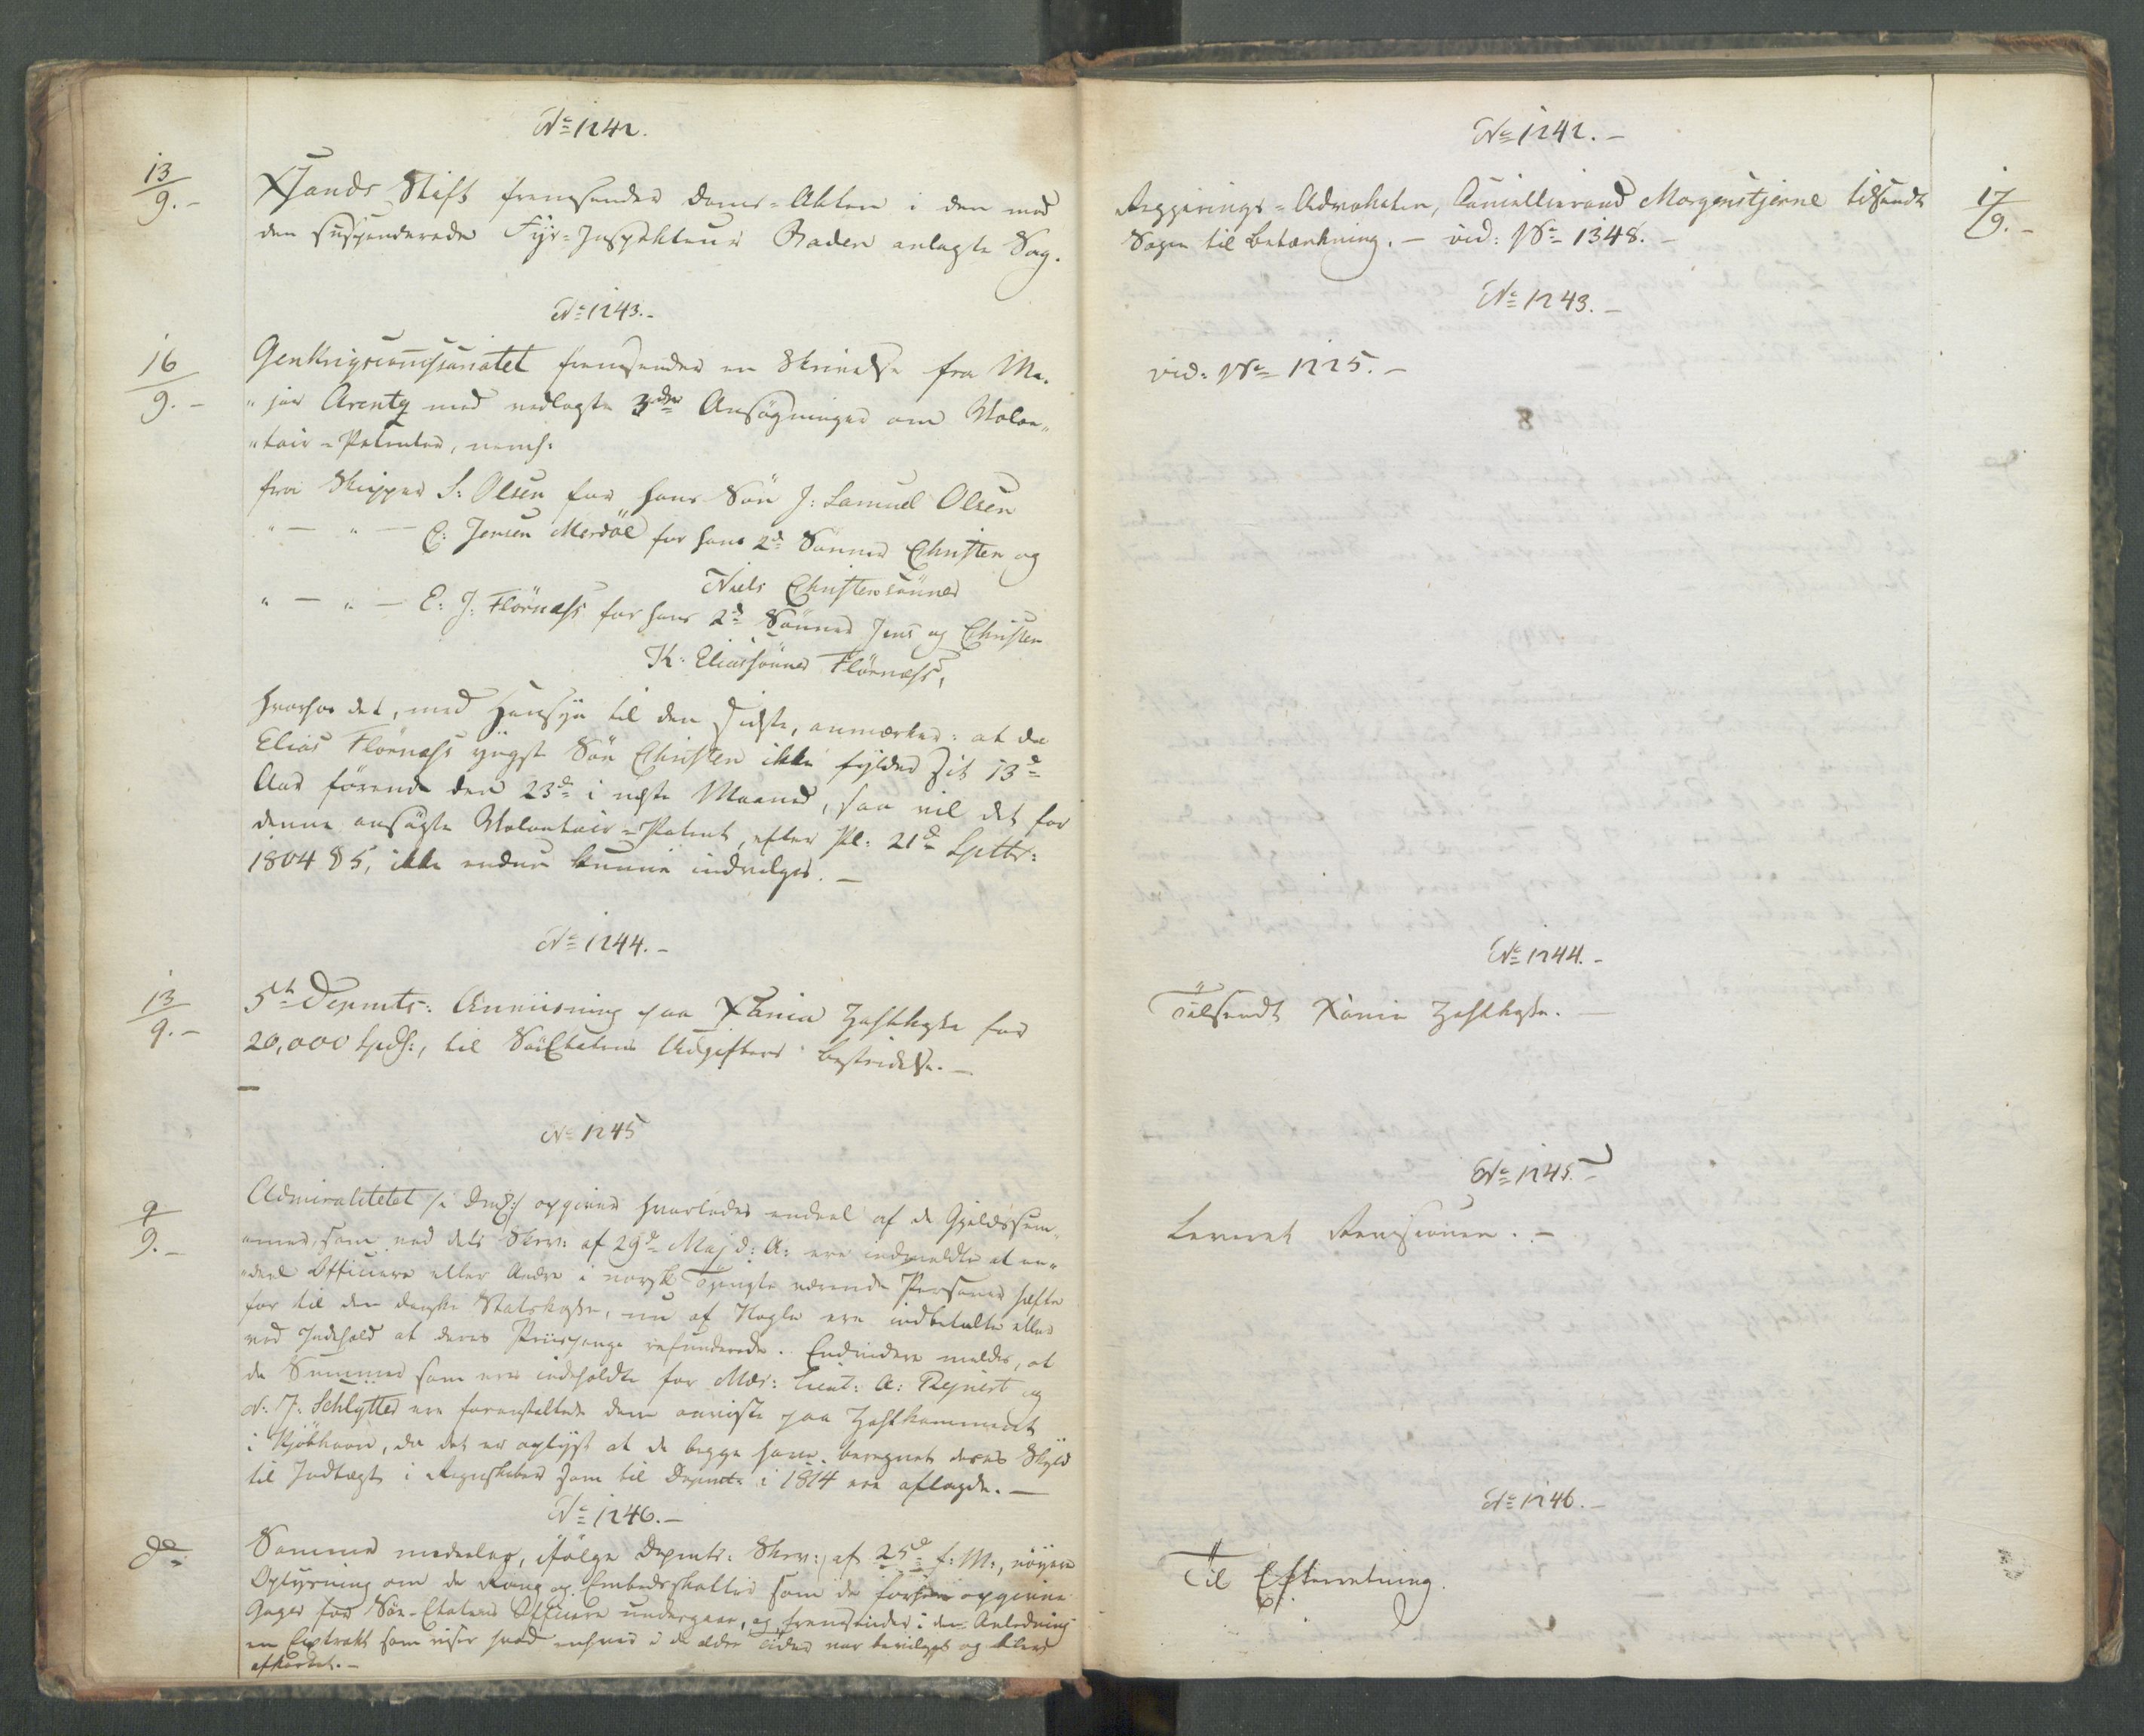 No 1242.
13/9.- Xsands Stift fremsender Doms-Akten i den mod
den suspenderede Fyr-Inspekteur Bader anlagte Sag.
No 1243.-
16/9.- GenKrigscommissariatet fremsender en Skrivelse fra Ma-
"jor Arentz med vedlagte 3de Ansøgninger om Volon-
"tair-Patenter, neml:
fra Skipper S: Olsen for hans Søn J: Samuel Olsen
" — " — C: Jensen Merdöe for hans 2de Sønner Christen og
Niels Christensönner
" — " — E: J: Flörnæss for hans 2de Sønner Jens og Christen
K: Eliassønner Flörnæss,
hvorhos det, med Hensyn til den Sidste, anmærker: at da
Elias Flörnæss yngste Søn Christen ikke fylder sit 13de
Aar førend den 23de i næste Maaned, saa vil det for
denne ansøgte Volontair-Patent, efter Pl: 21de Septbr:
1804 § 5, ikke endnu kunne indvilges.-
No 1244.-
13/9.- 5te Depmts: Anviisning paa Xania Zahlkasse for
20,000 Spd:, til SøeEtatens Udgifters Bestridelse.-
No 1245
9/9.- Admiralitetet /: Dmk:/ opgiver hvorledes endeel af de Gjeldssum-
"mer, som ved dets Skriv: af 29de Maj d: A: ere indmeldte at en-
"deel Officiere eller Andre i norsk Tjeneste værende Personer hæfte
for til den danske Statskasse, nu af Nogle ere indbetalte eller
ved Indehold at deres Priispenge refunderede. Endvidere meldes, at
de Summer som ere indeholdte for Mdr: Lieut: A: Rejnert og
N: J: Schlytter ere foranstaltede dem anviste paa Zahlkammeret
i Kjöbhavn, da det er oplyst at de begge have beregnet deres Skyld
til Indtægt i Regnskaber som til Depmtt i 1814 ere aflagde.-
No 1246.-
do: Samme meddeler, ifølge Depmts: Skriv: af 25de f: M:, nøyere
Oplysning om de Rang og Embedsskatter som de forhen opgivne
Gager for Søe-Etatens Officiere undergaae, og fremsender i den Anledning
en Extrakt som viser hvad enhver i de ældre Tider var bevilget og blev
afkortet.-
No 1242.-
Regjerings-Advokaten, Cancellieraad Morgenstjerne tilsendt 17/9.-
Sagen til Betænkning.- vid: No 1348.-
No 1243.-
vid: No 1225.-
No 1244.-
Tilsendt Xania Zahlkasse.-
No 1245.-
Leveret Revisionen.-
No 1246.-
Til Efterretning.